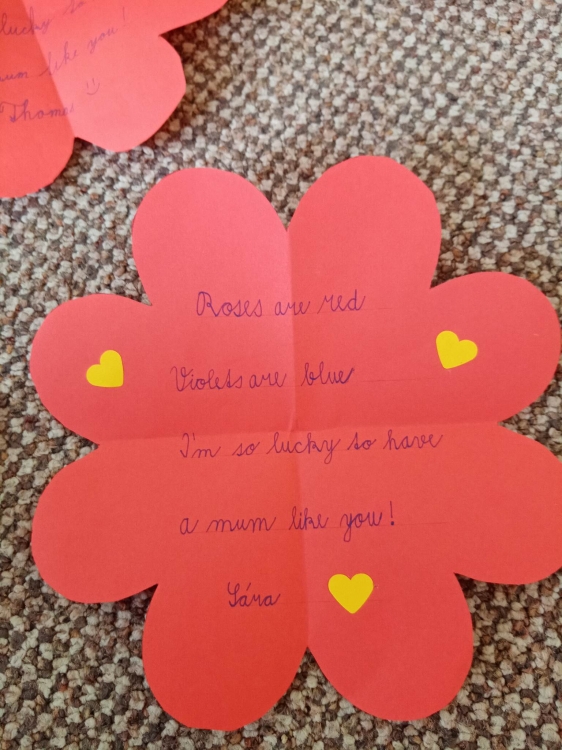 lucky to
mum like you!
Thomas
Roses are red
Violets are blue
I'm so lucky to have
a mum like you!
Sára